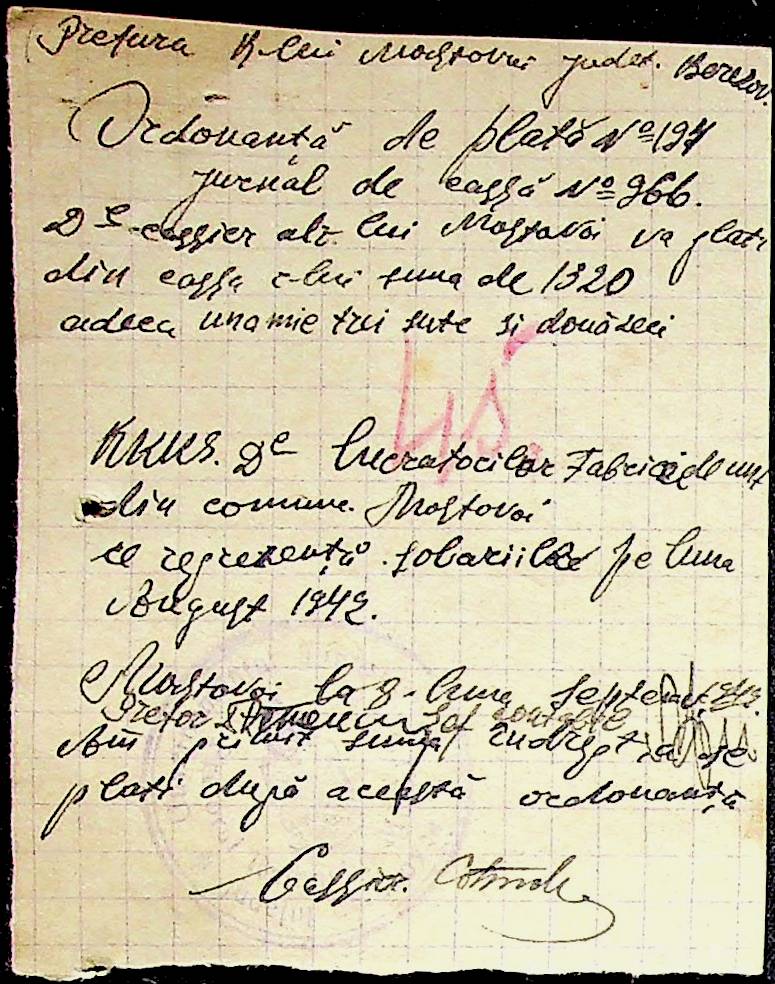 Prefura R-lui Mostovoi judet. Berezov.
Ordonanță de plată No 197
jurnal de cassă No 966.
Dl cassier al r. lui Mostovoi va plati
din cassa r-lui suma de 1320
adeca una mie trei sute si două zeci
45.
RKKS. De lucratorilor Fabricei de unt
din comuna Mostovoi
ce reprezentă solariile pe luna
August 1942.
Mostovoi la 8-luna Septemt. 1942.
Pretor Sef contabil
Am primit suma indrept
plati după această ordonanță
Cassier.